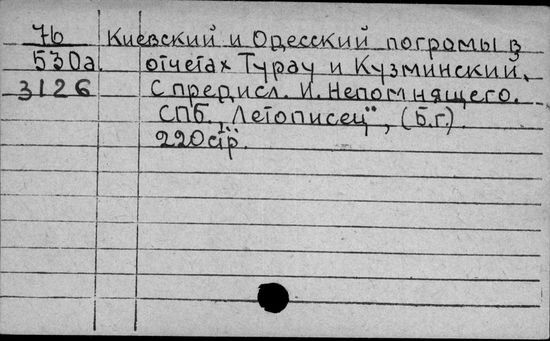 76 Киевский и Одесский погромы в
530а отчетах Турау и Кузминский.
3126 С предисл. И. Непомнящего.
СПб. „Летописец", (б.г.).
220стр.